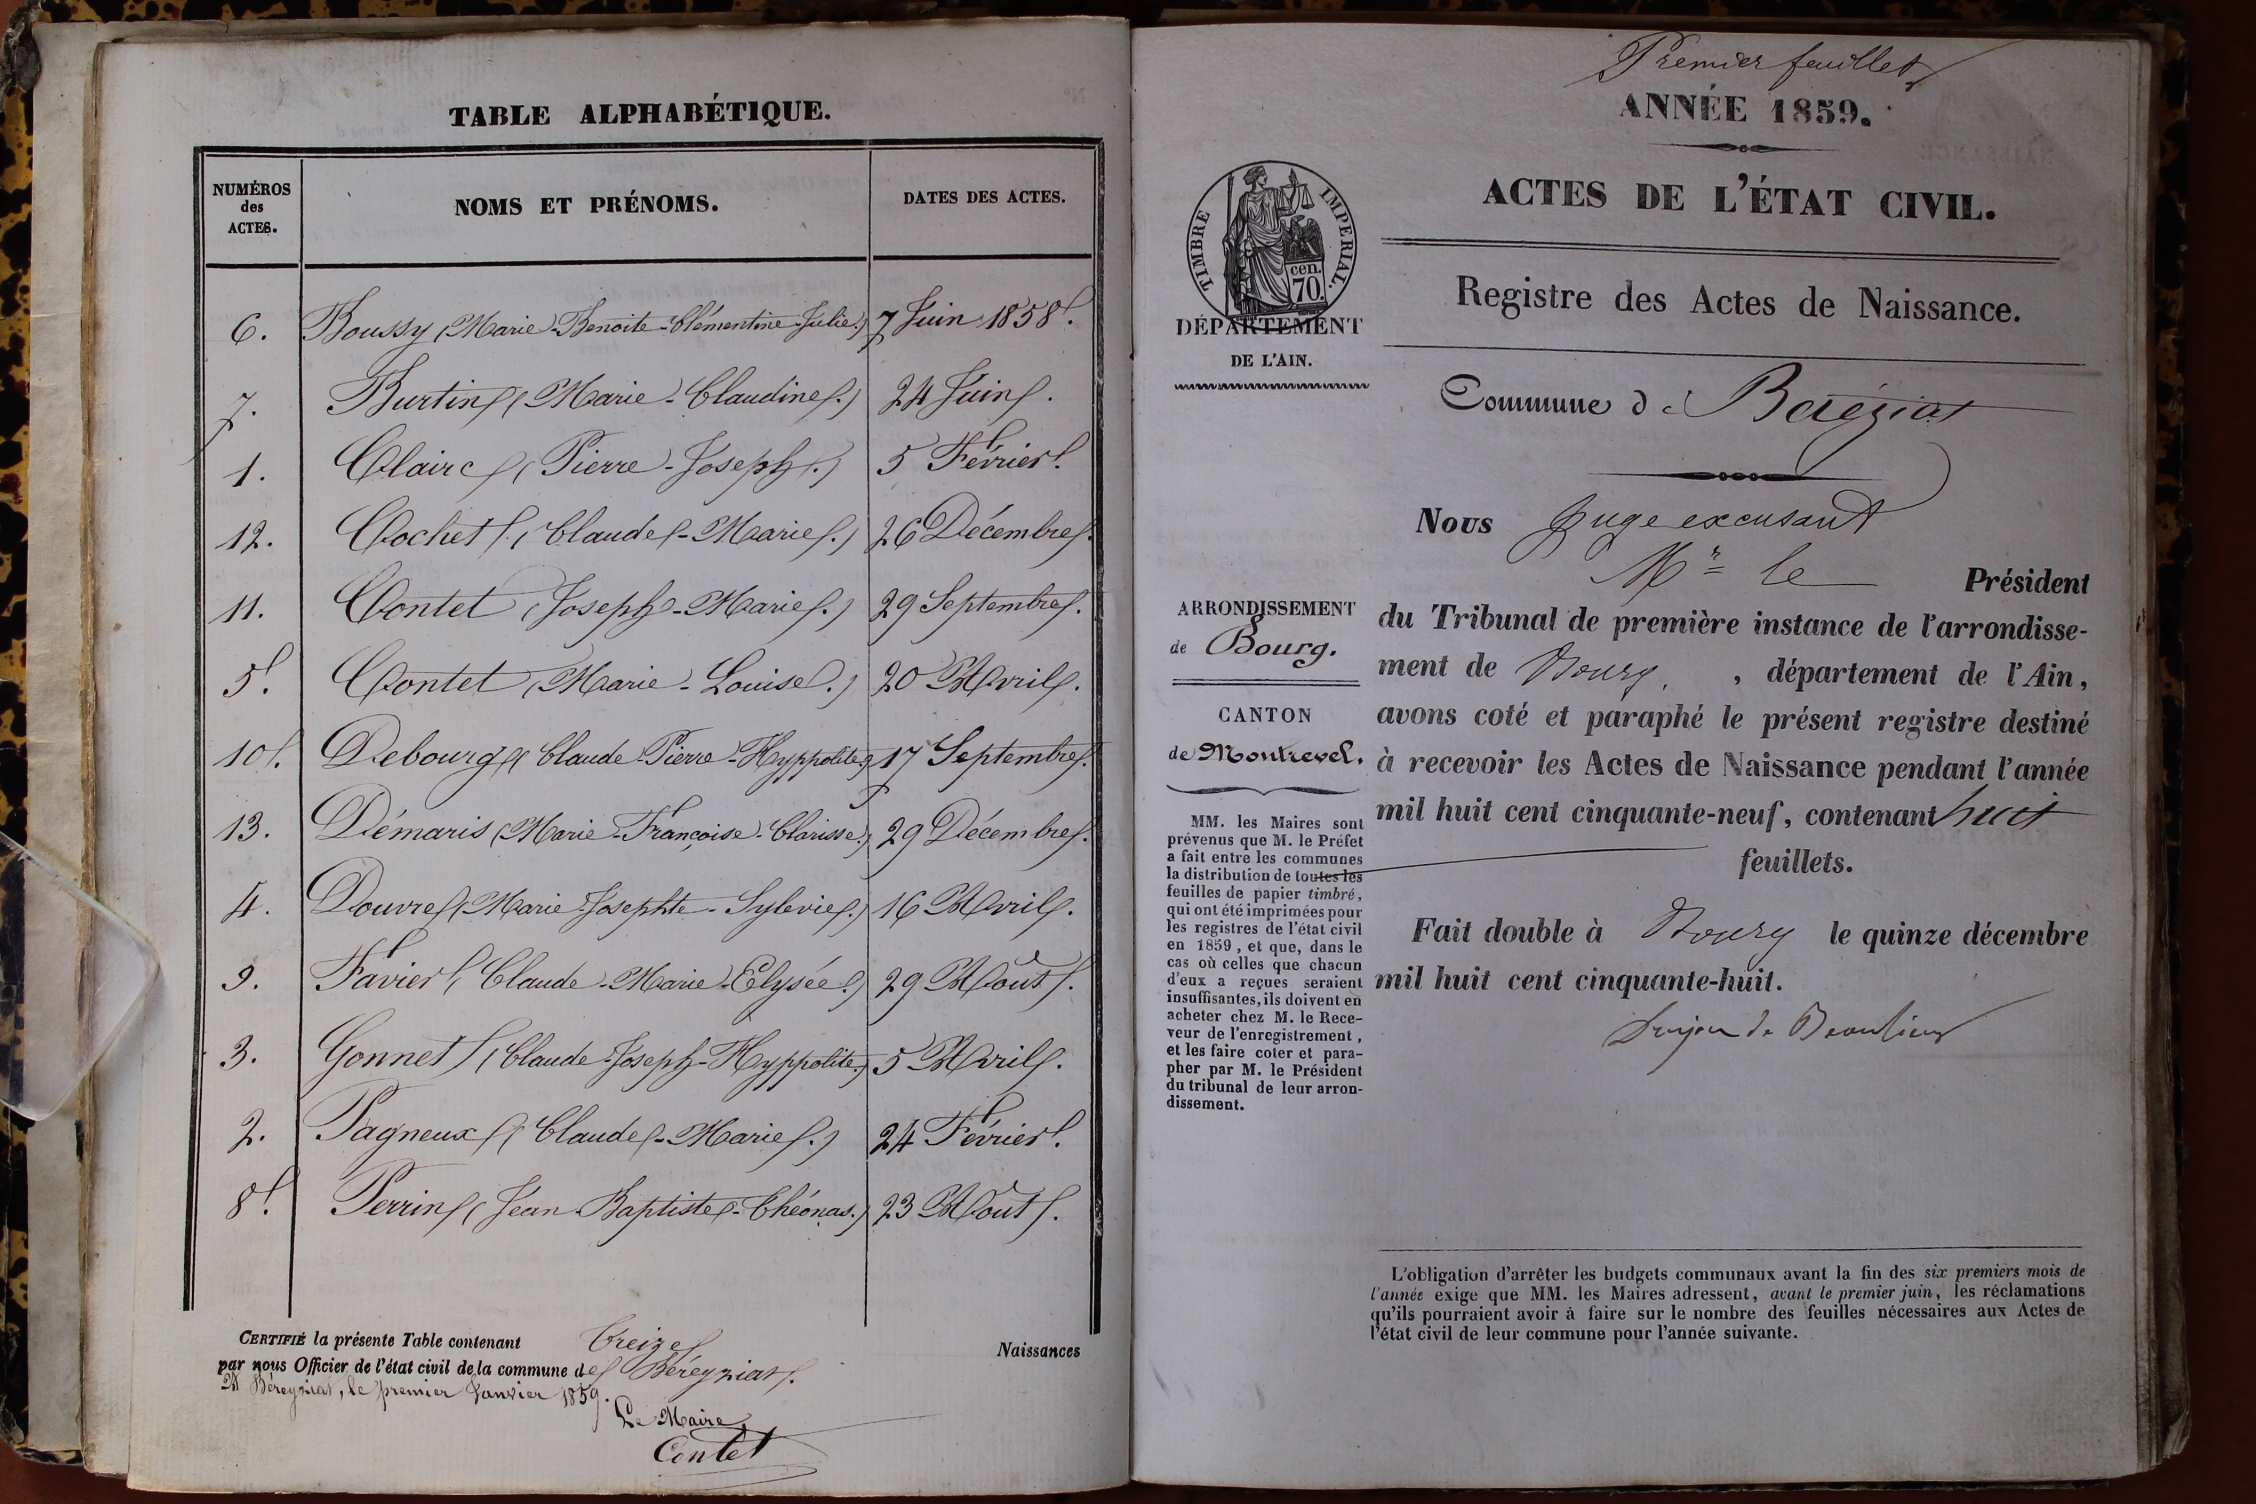 TABLE ALPHABÉTIQUE.
NUMÉROS des ACTES. NOMS ET PRÉNOMS. DATES DES ACTES.
6. Boussy (Marie-Benoite-Clémentine-Julie.) 7 Juin 1858.
7. Burtin (Marie-Claudine.) 24 Juin.
1. Clairc (Pierre-Joseph.) 5 Février.
12. Cochet (Claude-Marie.) 26 Décembre.
11. Contet (Joseph-Marie.) 29 Septembre.
5. Contet (Marie-Louise.) 20 Avril.
10. Debourg (Claude-Pierre-Hyppolite.) 17 Septembre.
13. Démaris (Marie-Françoise-Clarisse.) 29 Décembre.
4. Douvre (Marie-Josephte-Sylevie.) 16 Avril.
9. Favier (Claude-Marie-Elysée.) 29 Aout.
3. Gonnet (Claude-Joseph-Hyppolite.) 5 Avril.
2. Pagneux (Claude-Marie.) 24 Février.
8. Perrin (Jean-Baptiste-Théonas.) 23 Aout.
CERTIFIÉ la présente Table contenant Treize Naissances
par nous Officier de l'état civil de la commune de Béreyziat.
A Béreyziat, le premier Janvier 1859.
Le Maire,
Contet
Premier feuillet
ANNÉE 1859.
ACTES DE L'ÉTAT CIVIL.
TIMBRE IMPERIAL.
cen.
70.
DÉPARTEMENT
DE L'AIN.
Registre des Actes de Naissance.
Commune de Béréziat
Nous Juge excusant
Mr le Président
du Tribunal de première instance de l'arrondisse-
ment de Bourg, département de l'Ain,
avons coté et paraphé le présent registre destiné
à recevoir les Actes de Naissance pendant l'année
mil huit cent cinquante-neuf, contenant huit
feuillets.
Fait double à Bourg le quinze décembre
mil huit cent cinquante-huit.
de Beaulieu
ARRONDISSEMENT
de Bourg.
CANTON
de Montrevel.
MM. les Maires sont
prévenus que M. le Préfet
a fait entre les communes
la distribution de toutes les
feuilles de papier timbré,
qui ont été imprimées pour
les registres de l'état civil
en 1859, et que, dans le
cas où celles que chacun
d'eux a reçues seraient
insuffisantes, ils doivent en
acheter chez M. le Rece-
veur de l'enregistrement,
et les faire coter et para-
pher par M. le Président
du tribunal de leur arron-
dissement.
L'obligation d'arrêter les budgets communaux avant la fin des six premiers mois de
l'année exige que MM. les Maires adressent, avant le premier juin, les réclamations
qu'ils pourraient avoir à faire sur le nombre des feuilles nécessaires aux Actes de
l'état civil de leur commune pour l'année suivante.